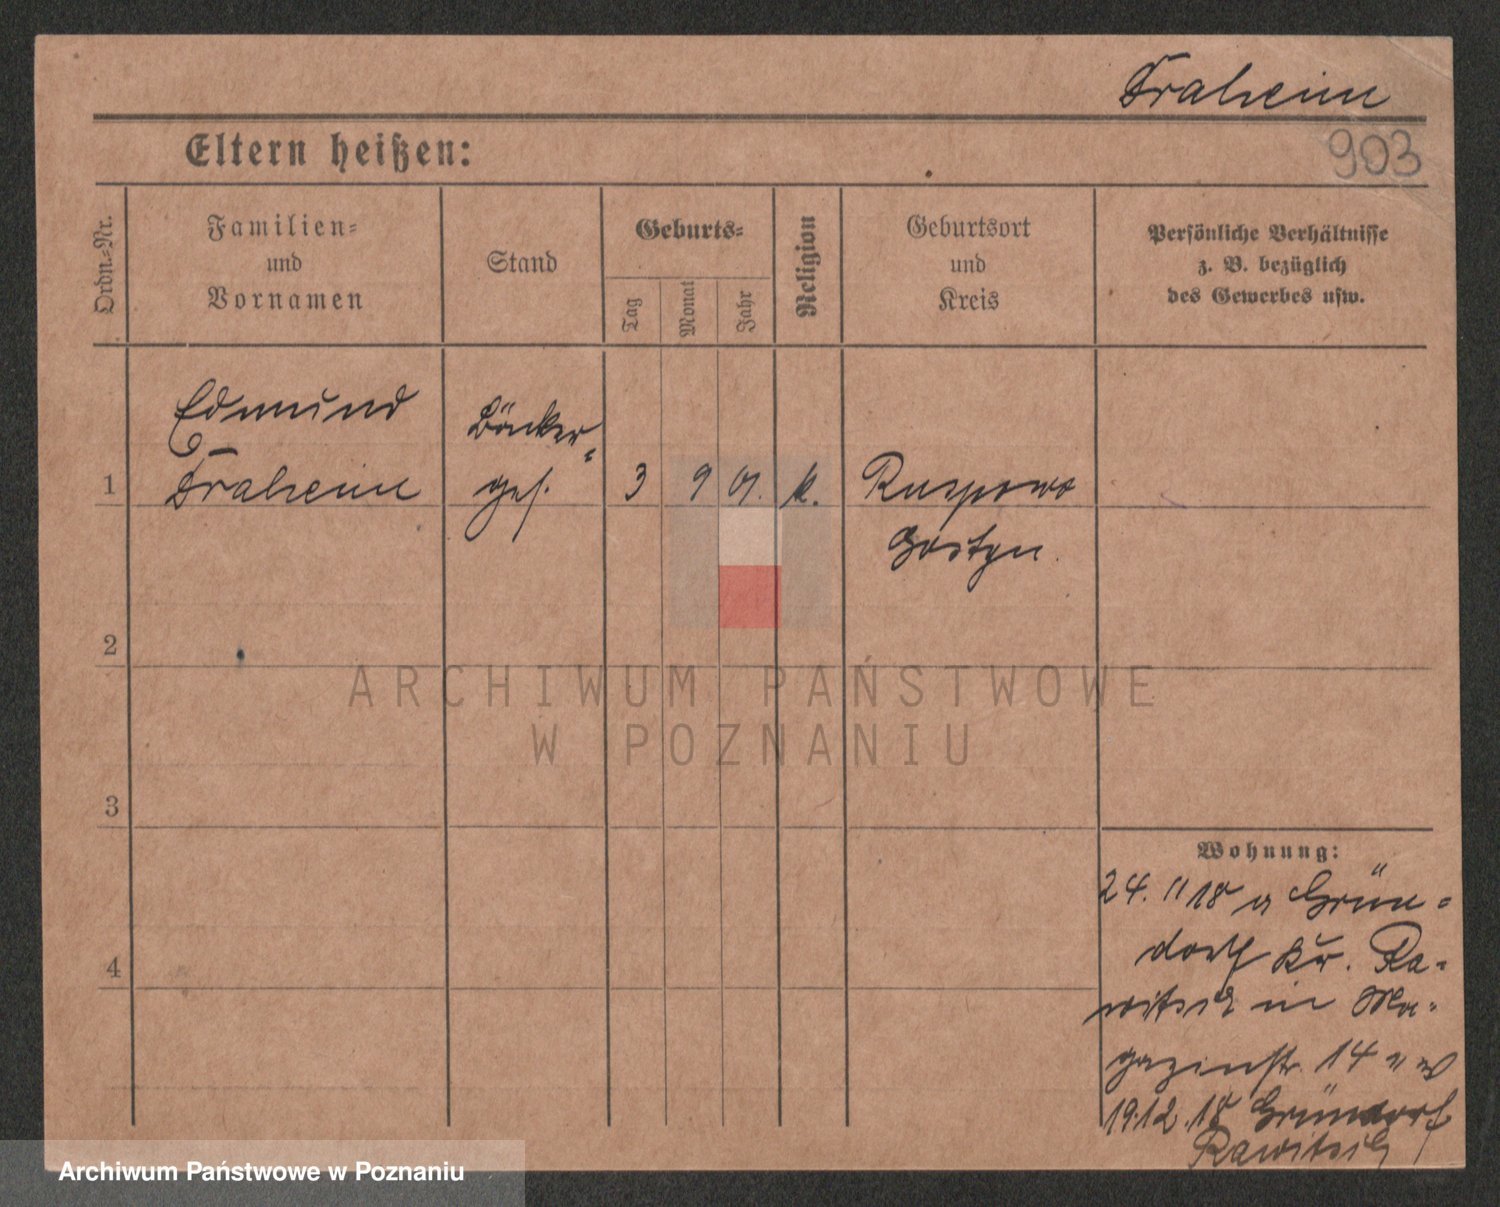 Fraheim
903
Eltern heißen:
Ordn.-Nr.
Familien-
und
Vornamen
Stand
Geburts-
Tag
Monat
Jahr
Religion
Geburtsort
und
Kreis
Persönliche Verhältnisse
z. B. bezüglich
des Gewerbes usw.
Edmund
Fraheim
Bäcker-
ges.
1
3 9 01. k.
Gostyn.
2
ARCHIWUM PAŃSTWOWE
W POZNANIU
3
Wohnung:
24. 11 18 a Grün-
dorf Kr. Ra-
witsch in Ma-
gazinstr. 14
19.12.18 Gründorf
Rawitsch
4
Archiwum Państwowe w Poznaniu